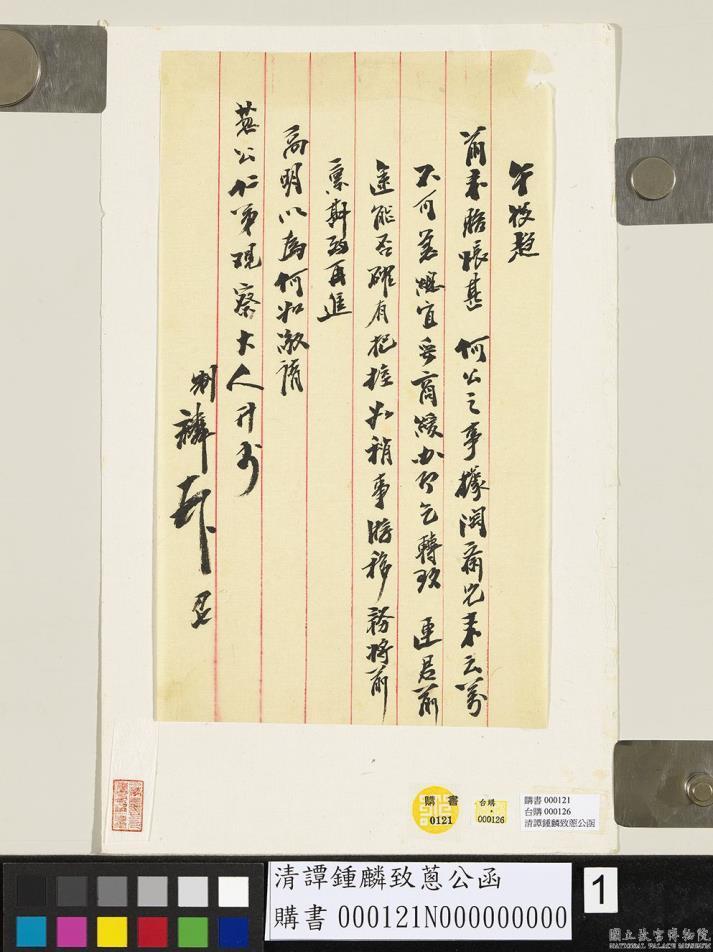 前承贍悵甚 何公之事據潤甫兄來云萬
不可著想宜妥商緩辦乞轉致 連君前
途能否確有把握如稍事游移務將前
稟斟酌再進
高明以為何如敬請
蔥公仁弟觀察大人升安
制 麟
購書
0121
台購
000126
購書 000121
台購 000126
清譚鍾麟致蔥公函
清譚鍾麟致蔥公函
購書 000121N000000000
1
國立故宮博物院
NATIONAL PALACE MUSEUM